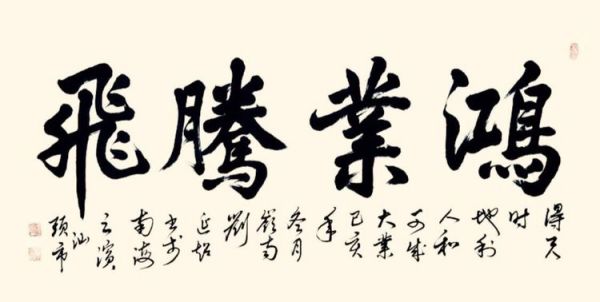 鴻業騰飛
得天
时
地利
人和
可成
大業
己亥
年
冬月
嶺南
劉
延
书於
南海
之濱
汕
頭市